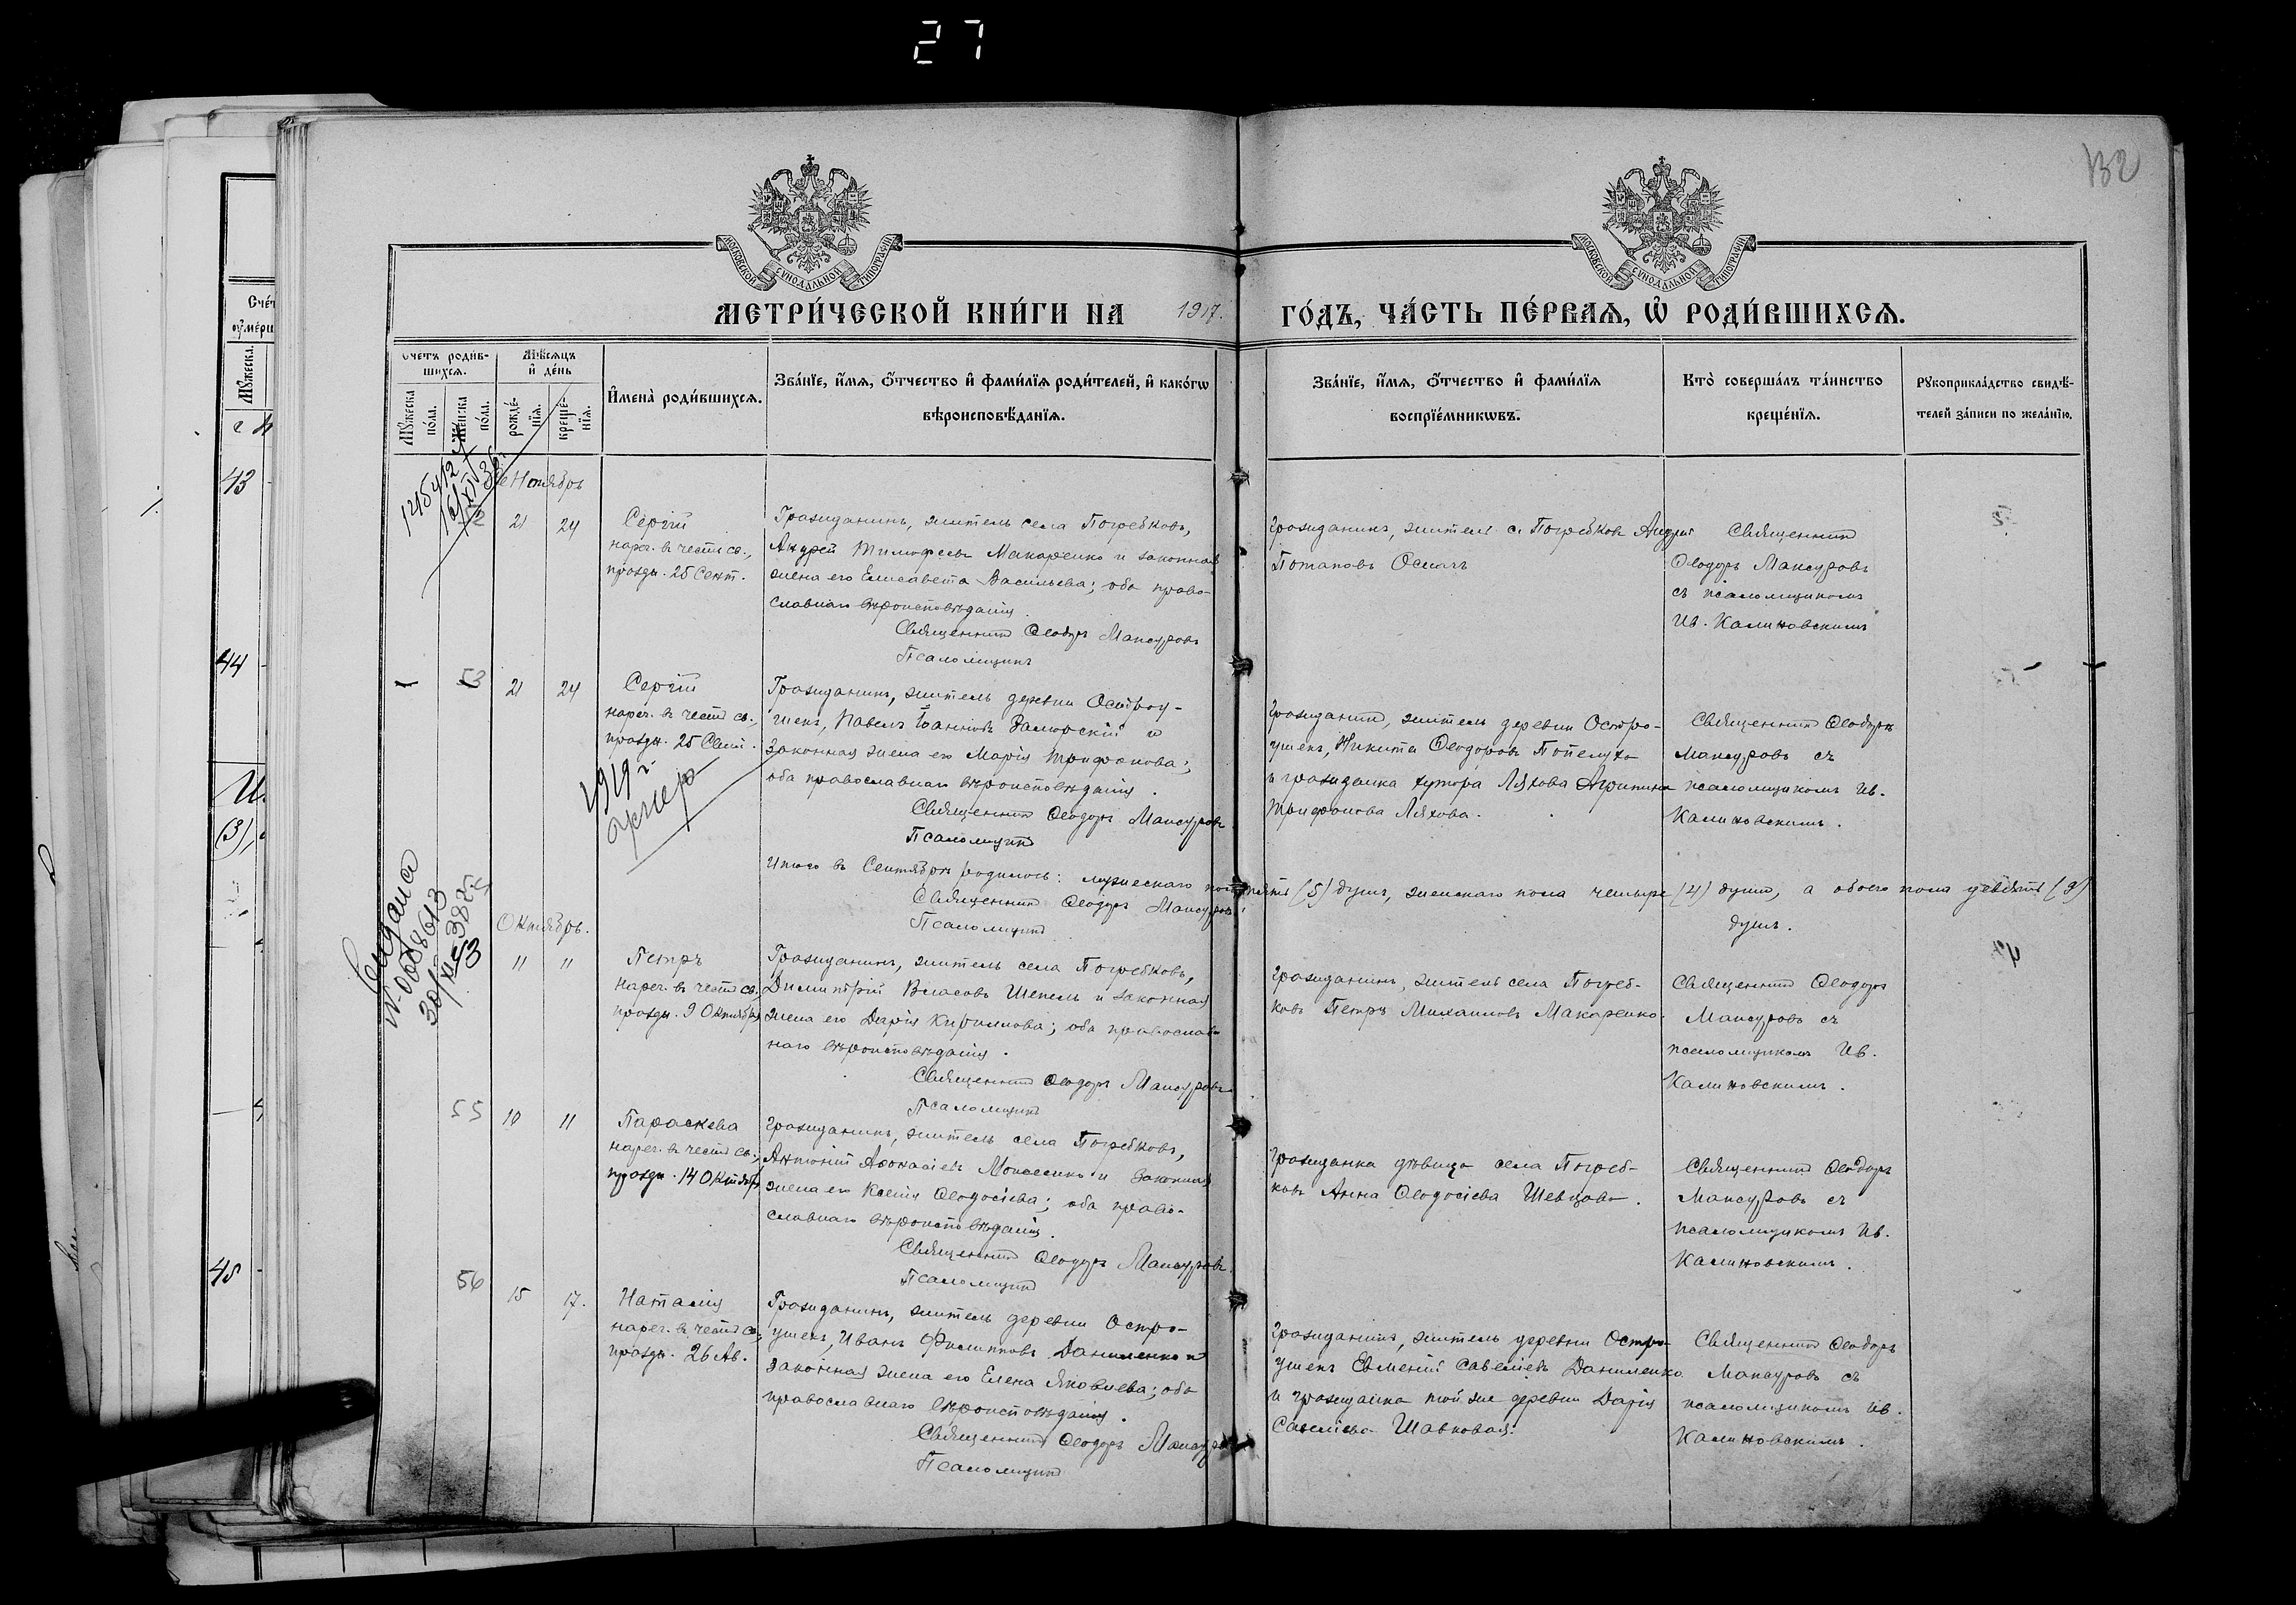 27
132
МОСКОВСКОЙ СУНОДАЛЬНОЙ ТИПОГРАФІИ
МОСКОВСКОЙ СУНОДАЛЬНОЙ ТИПОГРАФІИ
МЕТРИ́ЧЕСКОЙ КНИ́ГИ НА 1917. ГО́ДЪ, ЧА́СТЬ ПЕ́РВАѦ, Ѡ҆ РОДИ́ВШИХСѦ.
Счетъ роди́в-
шихсѧ.
Мѣ́сѧцъ
и҆ де́нь
Мꙋ́жеска по́ла.
Же́нска по́ла.
рожде́-
нїѧ.
креще́-
нїѧ.
И҆мена̀ роди́вшихсѧ.
Зва́нїе, и҆́мѧ, ѻ҆́тчество и҆ фами́лїѧ роди́телей, и҆ како́гѡ
вѣроисповѣ́данїѧ.
Зва́нїе, и҆́мѧ, ѻ҆́тчество и҆ фами́лїѧ
воспрїе́мникѡвъ.
Кто̀ соверша́лъ та́инство
креще́нїѧ.
Рꙋкоприкла́дство свидѣ́-
телей за́писи по жела́нїю.
Счет
ᲂу҆ме́рш
Мꙋ́жеска.
43
44
45
21 24
Сергій
нареч. въ честь св.,
праздн. 25 Сент.
Гражданинъ, житель села Погребковъ,
Андрей Тимофеевъ Макаренко и законная
жена его Елисавета Васильева; оба право-
славнаго вѣроисповѣданія.
Священникъ Ѳеодоръ Мансуровъ
Псаломщикъ
гражданинъ, житель с. Погребковъ Андрей
Потаповъ Осмачъ
Священникъ
Ѳеодоръ Мансуровъ
съ псаломщикомъ
Ив. Калиновскимъ
53 21 24
Сергій
нареч. въ честь св.,
праздн. 25 Сент.
1919 г.
умер
Гражданинъ, житель деревни Остроу-
шекъ, Павелъ Іоанновъ Заморскій и
законная жена его Марія Трифонова;
оба православнаго вѣроисповѣданія.
Священникъ Ѳеодоръ Мансуровъ
Псаломщикъ
гражданинъ, житель деревни Остро-
ушекъ, Никита Ѳеодоровъ Попелухо
и гражданка хутора Ляхова Агрипина
Трифонова Ляхова.
Священникъ Ѳеодоръ
Мансуровъ съ
псаломщикомъ Ив.
Калиновскимъ.
Итого въ Сентябрѣ родилось: мужескаго пола пять (5) душъ, женскаго пола четыре (4) души, а обоего пола девять (9)
душъ.
Священникъ Ѳеодоръ Мансуровъ
Псаломщикъ
Октябрь.
11 11
Петръ
нареч. въ честь св.,
праздн. 9 Октября
Гражданинъ, житель села Погребковъ,
Димитрій Власовъ Шепель и законная
жена его Дарія Кириллова; оба православ-
наго вѣроисповѣданія.
Священникъ Ѳеодоръ Мансуровъ
Псаломщикъ
гражданинъ, житель села Погреб-
ковъ Петръ Михаиловъ Макаренко.
Священникъ Ѳеодоръ
Мансуровъ съ
псаломщикомъ Ив.
Калиновскимъ.
55 10 11
Параскева
нареч. въ честь св.,
праздн. 14 Октября
Гражданинъ, житель села Погребковъ,
Антоній Аѳонасіевъ Моисеенко и законная
жена его Ксенія Ѳеодосіева; оба право-
славнаго вѣроисповѣданія.
Священникъ Ѳеодоръ Мансуровъ
Псаломщикъ
гражданка дѣвица села Погреб-
ковъ Анна Ѳеодосіева Шевцова.
Священникъ Ѳеодоръ
Мансуровъ съ
псаломщикомъ Ив.
Калиновскимъ.
56 15 17.
Наталія
нареч. въ честь св.,
праздн. 26 Ав.
Гражданинъ, житель деревни Остро-
ушекъ, Иванъ Филипповъ Даниленко и
законная жена его Елена Яковлева; оба
православнаго вѣроисповѣданія.
Священникъ Ѳеодоръ Мансуровъ
Псаломщикъ
гражданинъ, житель деревни Остро-
ушекъ Евменій Савеліевъ Даниленко
и гражданка той же деревни Дарія
Савеліева Шавковая.
Священникъ Ѳеодоръ
Мансуровъ съ
псаломщикомъ Ив.
Калиновскимъ.